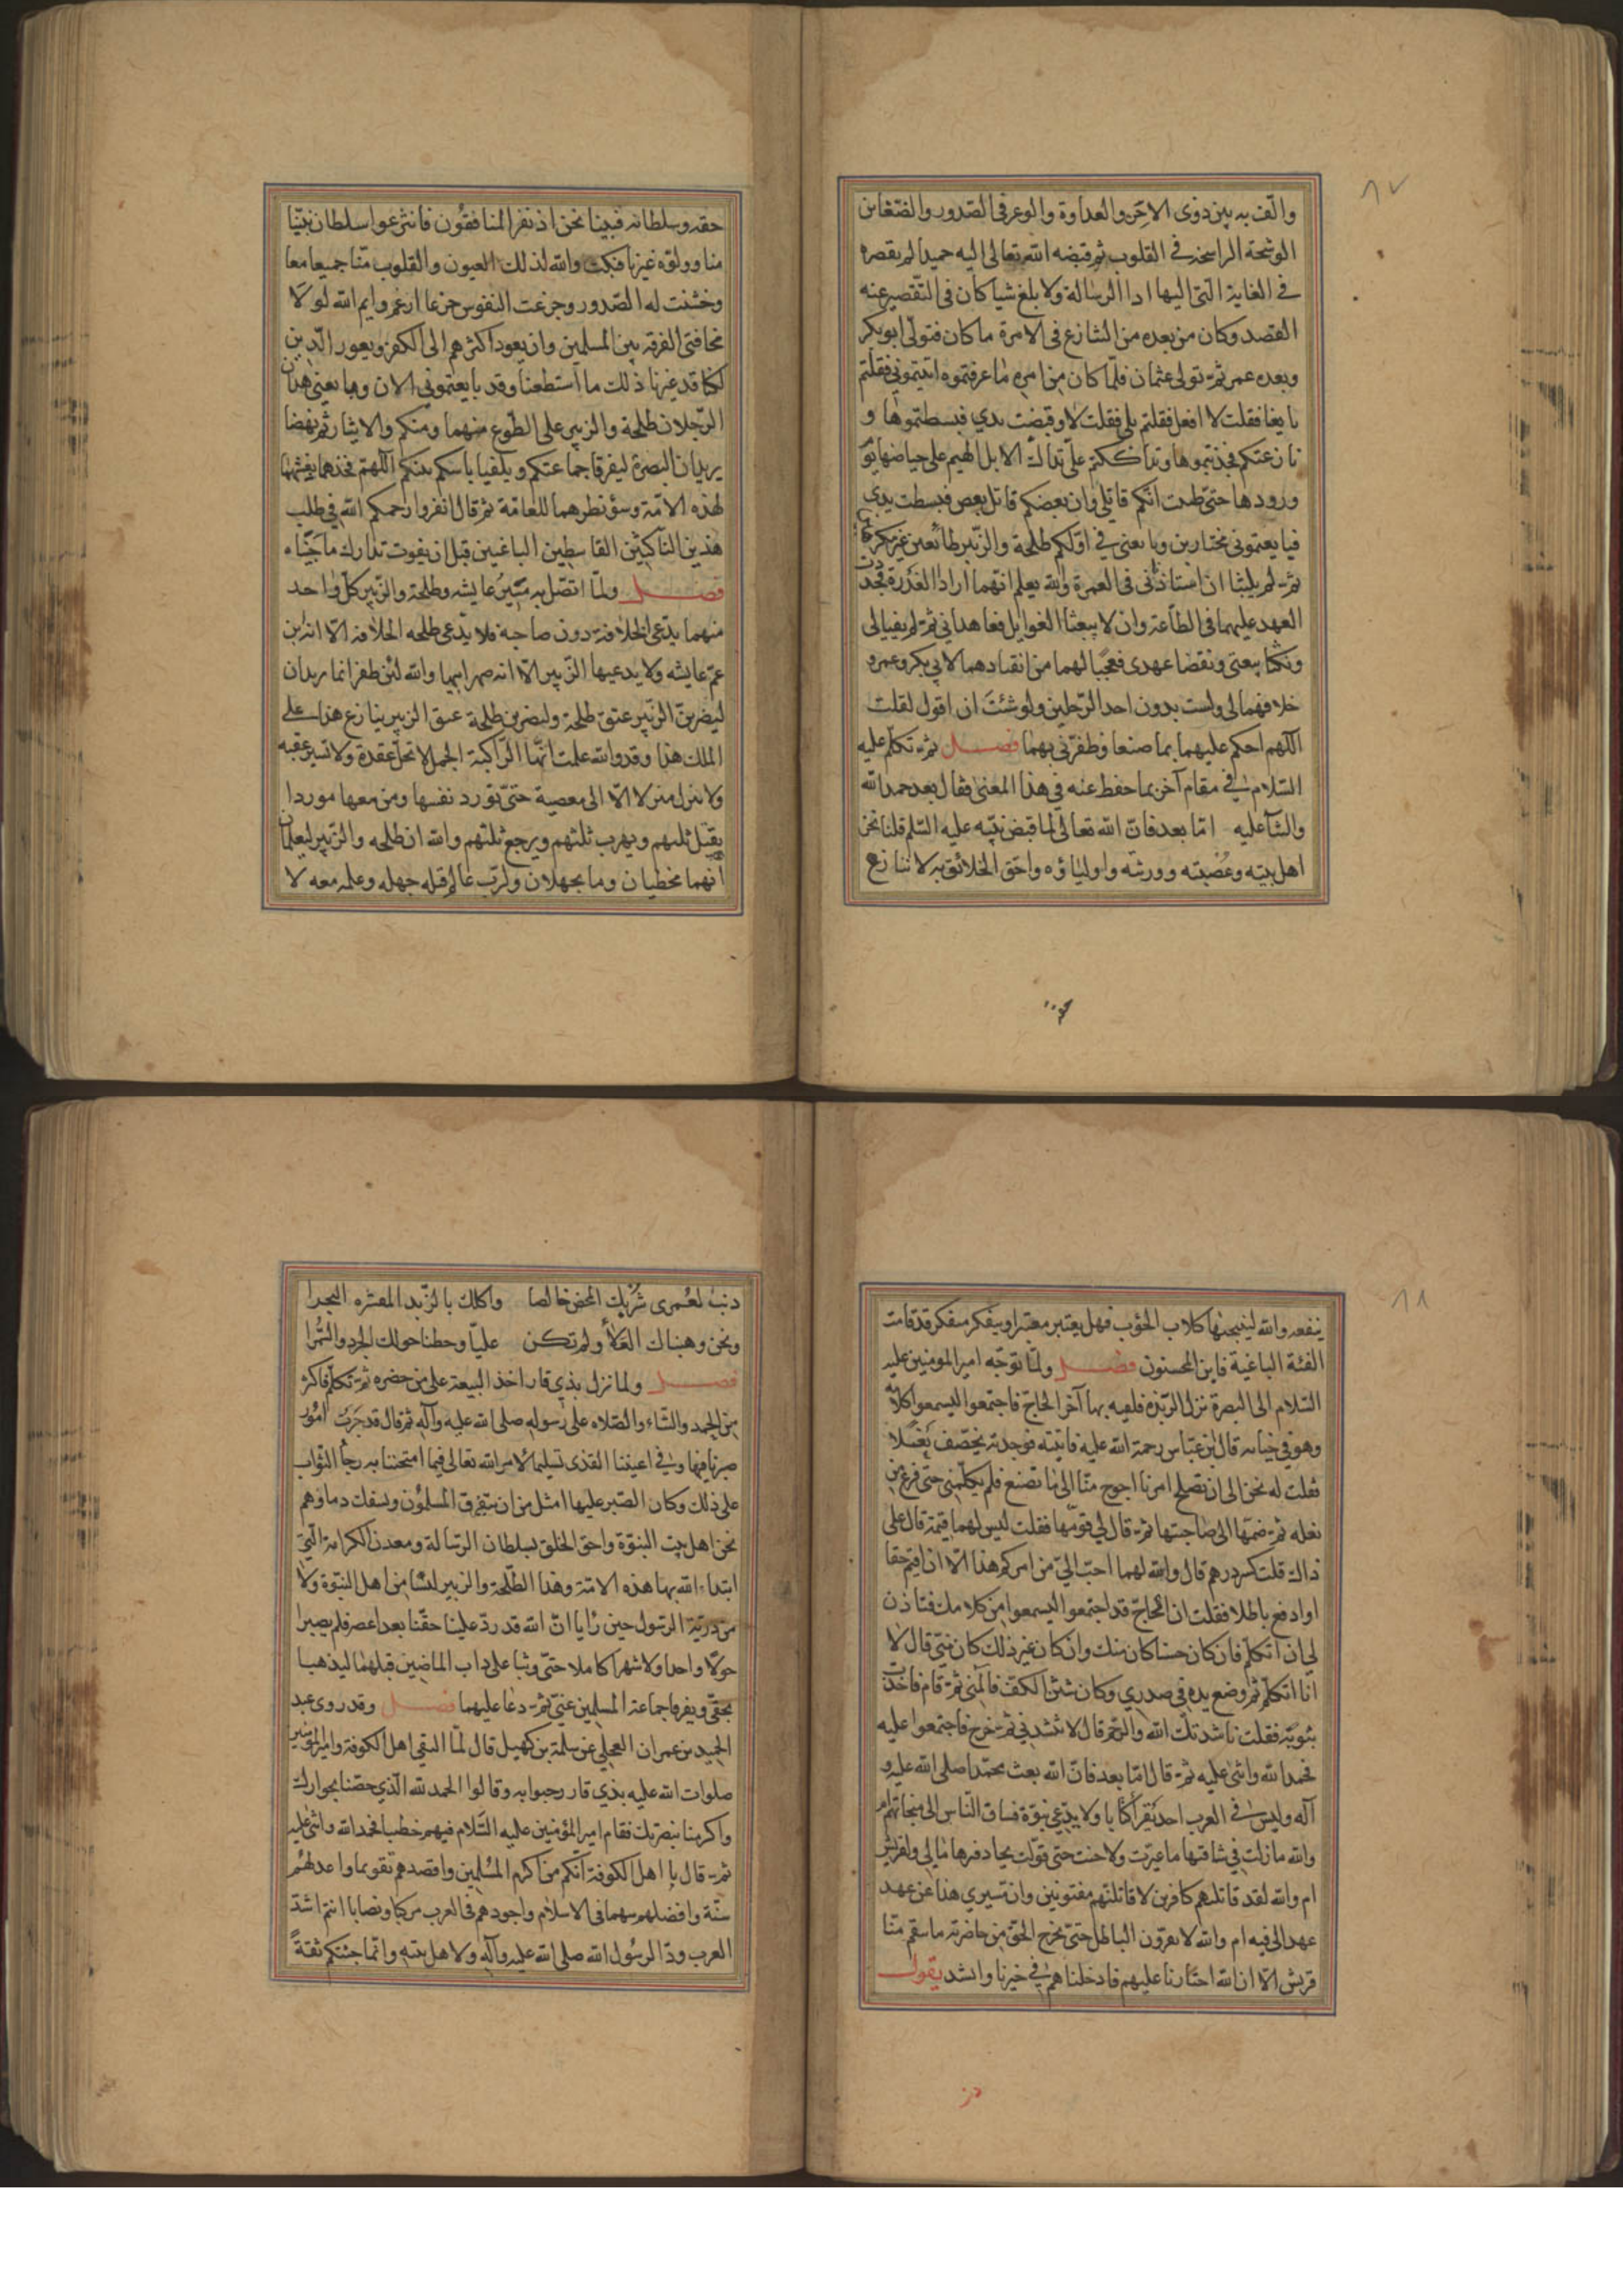 ٨٧
والّف به بين ذوى الاحن والعداوة والوغر فى الصّدور والضّغاين
الوشجة الراسخة فى القلوب ثم قبضه الله تعالى اليه حميدا لم يقصر
فى الغاية الّتى اليها ادا الرسالة ولا بلغ شيا كان فى التّقصير عنه
القصد وكان من بعده من التنازع فى الامرة ما كان فتولّى ابو بكر
وبعده عمر ثمّ تولى عثمان فلمّا كان من امره ما عرفتموه اتيتمونى فقلتم
بايعنا فقلت لا افعل فقلتم بلى فقلت لا وقبضت يدى فبسطتموها و
نازعتكم فجذبتموها وتداككتم علىّ تداكّ الابل الهيم على حياضها يوم
ورودها حتى ظننت انكم قاتلى وان بعضكم قاتل بعض فبسطت يدى
فبايعتمونى مختارين وبايعنى فى اوّلكم طلحة والزّبير طائعين غير مكرهين
ثمّ لم يلبثا ان استاذنى فى العمرة والله يعلم انّهما ارادا الغدرة فجددت
العهد عليهما فى الطّاعة وان لا يبغثا الغوايل فعاهدانى ثم لم يفيا لى
ونكثا بيعتى ونقضا عهدى فعجبًا لهما من انقيادهما لابى بكر وعمر و
خلافهما لى ولست بدون احد الرّجلين ولو شئت ان اقول لقلت
اللهم احكم عليهما بما صنعا وظفرنى بهما فصل ثمّ تكلم عليه
السّلام فى مقام آخر بما حفظ عنه فى هذا المعنى فقال بعد حمد الله
والثنآ عليه امّا بعد فانّ الله تعالى لما قبض نبيّه عليه السّلم قلنا نحن
اهل بيته وعُصبته وورثته واولياؤه واحق الخلائق به لا ننازع
حقه وسلطانه فبينا نحن اذ نفر المنافقون فانتزعوا سلطان نبيّنا
منا وولوّه غيرنا فبكت والله لذلك العيون والقلوب منّا جميعا معا
وخشنت له الصّدور وجزعت النفوس جزعا ارغم وايم الله لولا
مخافتى الفرقة بين المسلمين وان يعود اكثرهم الى الكفر ويعور الدّين
لكنّا قد غيّرنا ذلك ما استطعنا وقد بايعتمونى الان وبايعنى هذان
الرّجلان طلحة والزبير على الطّوع منهما ومنكم والايثار ثم نهضا
يريدان البصرة ليفرقا جماعتكم ويلقيا باسكم بينكم اللهمّ فخذهما بغشّهما
لهذه الامّة وسوء نظرهما للعامّة ثم قال انفروا رحمكم الله فى طلب
هذين الناكثين القاسطين الباغيين قبل ان يفوت تدارك ما جنياه
فصل ولمّا اتصل به مسير عايشه وطلحة والزبير كلّ واحد
منهما يدّعى الخلافة دون صاحبه فلا يدّعى طلحه الخلافه الّا انه ابن
عمّ عايشه ولا يدعيها الزّبير الّا انه صهر ابيها والله لئن ظفرا بما يريدان
ليضربنّ الزّبير عنق طلحة وليضربن طلحة عنق الزبير ينازع هذا على
الملك هذا وقد والله علمت انّها الرّاكبة الجمل لا تحلّ عقدة ولا تسير عقبه
ولا تنزل منزلا الّا الى معصية حتّى تورد نفسها ومن معها موردا
يقتل ثلثهم ويهرب ثلثهم ويرجع ثلثهم والله ان طلحه والزبير ليعلمان
انّهما مخطيان وما يجهلان ولربّ عالم قتله جهله وعلمه معه لا
٨٨
ينفعه والله لينبحنها كلاب الحؤب فهل يعتبر معتبر او يتفكر متفكر قد قامت
الفئة الباغية فاين المحسنون فصل ولمّا توجّه امير المومنين عليه
السّلام الى البصرة نزل الرّبذة فلقيه بها آخر الحاجّ فاجتمعوا ليسمعوا كلامه
وهو فى خبائه قال ابن عبّاس رحمة الله عليه فاتيته فوجدته يخصف نعلا
فقلت له نحن الى ان تصلح امرنا احوج منّا الى ما تصنع فلم يكلّمنى حتى فرغ من
نعله ثمّ ضمّها الى صاحبتها ثمّ قال لى قوّمها فقلت ليس لهما قيمة قال على
ذاك قلت كسر درهم قال والله لهما احبّ الىّ من امركم هذا الّا ان اقيم حقا
او ادفع باطلا فقلت ان الحاجّ قد اجتمعوا ليسمعوا من كلامك فتاذن
لى ان اتكلّم فان كان حسنا كان منك وان كان غير ذلك كان منّى قال لا
انا اتكلّم ثم وضع يده فى صدرى وكان شثن الكفّ فآلمنى ثمّ قام فاخذت
بثوبه فقلت ناشدتك الله والرّحم قال لا تنشدنى ثمّ خرج فاجتمعوا عليه
فحمد الله واثنى عليه ثمّ قال امّا بعد فانّ الله بعث محمّدا صلى الله عليه و
آله وليس فى العرب احد يقرا كتابا ولا يدّعى نبوّة فساق النّاس الى منجاتهم ام
والله ما زلت فى ساقتها ما غيّرت ولا خنت حتى تولّت بحذافيرها مالى ولقريش
ام والله لقد قاتلتهم كافرين لاقاتلنهم مفتونين وان مسيرى هذا عن عهد
عهد الى فيه ام والله لابقرّون الباطل حتى يخرج الحق من خاصرته ما تنقم منّا
قريش الّا ان الله اختارنا عليهم فادخلناهم فى خيرنا وانشد يقول
ذنب لعمرى شربك المحض خالصا واكلك بالزّبد المقشره البجرا
ونحن وهبناك العلاء ولم تكن عليّا وحطنا حولك الجرد والسّمرا
فصل ولما نزل بذى قار اخذ البيعة على من حضره ثمّ تكلّم فاكثر
من الحمد والثناء والصّلاه على رسوله صلى الله عليه وآله ثم قال قد جرت امور
صبرنا فيها وفى اعيننا القذى تسليما لامر الله تعالى فيما امتحننا به رجا الثّواب
على ذلك وكان الصّبر عليها امثل من ان يتفرّق المسلمون وتسفك دماؤهم
نحن اهل بيت النبوّة واحق الخلق بسلطان الرّسالة ومعدن الكرامة الّتى
ابتداء الله بها هذه الامّة وهذا الطّلحة والزبير ليسا من اهل النبّوة ولا
من ذريّة الرسول حين رايا انّ الله قد ردّ علينا حقّنا بعد اعصر فلم يصبرا
حولا واحدا ولا شهرا كاملا حتّى وثبا على داب الماضين قبلهما ليذهبا
بحقى ويفرقا جماعة المسلمين عنّى ثمّ دعا عليهما فصل وقد روى عبد
الحميد بن عمران العجلى عن سلمة بن كهيل قال لمّا التقى اهل الكوفة وامير المؤمنين
صلوات الله عليه بذى قار رحبوا به وقالوا الحمد لله الّذى خصّنا بجوارك
واكرمنا بنصرتك فقام امير المؤمنين عليه السّلام فيهم خطيبا فحمد الله واثنى عليه
ثمّ قال يا اهل الكوفة انّكم من اكرم المسلمين واقصدهم تقويما واعدلهم
سنّة وافضلهم سهما فى الاسلام واجودهم فى العرب مركبا ونصابا انتم اشدّ
العرب ودّا لرسول الله صلى الله عليه وآله ولاهل بيته وانّما جئتكم ثقةً